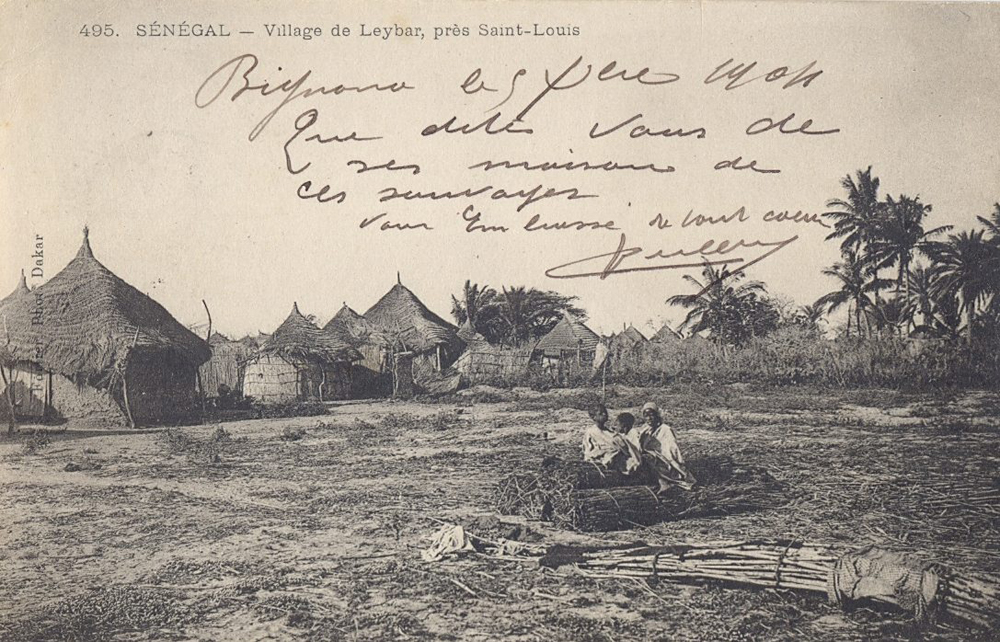 495. SÉNÉGAL — Village de Leybar, près Saint-Louis
Bignona le 5 Xbre 1904
Que dites vous de
ses maison de
ces sauvages
Vous Embrasse de tout coeur
Phot. Dakar